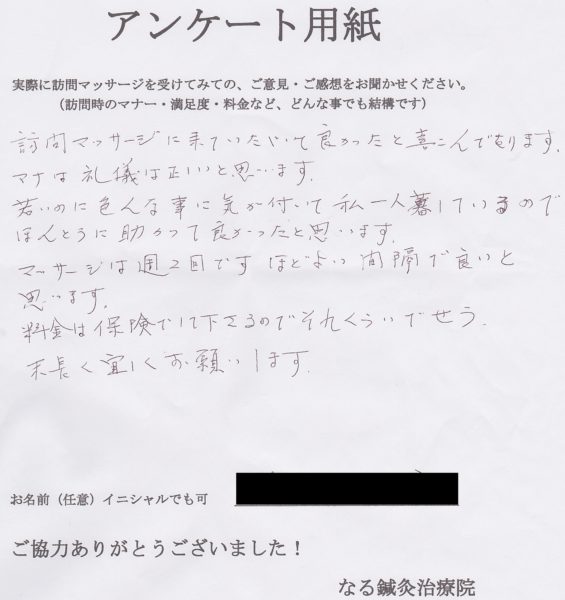 アンケート用紙
実際に訪問マッサージを受けてみての、ご意見・ご感想をお聞かせください。
（訪問時のマナー・満足度・料金など、どんな事でも結構です）
訪問マッサージに来ていただいて良かったと喜こんでおります。
マナは礼儀は正いと思います。
若いのに色んな事に気が付いて私一人暮しているので
ほんとうに助かって良かったと思います。
マッサージは週2回です ほどよい間隔で良いと
思います。
料金は保険でして下さるのでそれくらいでせう。
末長く宜しくお願いします。
お名前（任意）イニシャルでも可
ご協力ありがとうございました！
なる鍼灸治療院